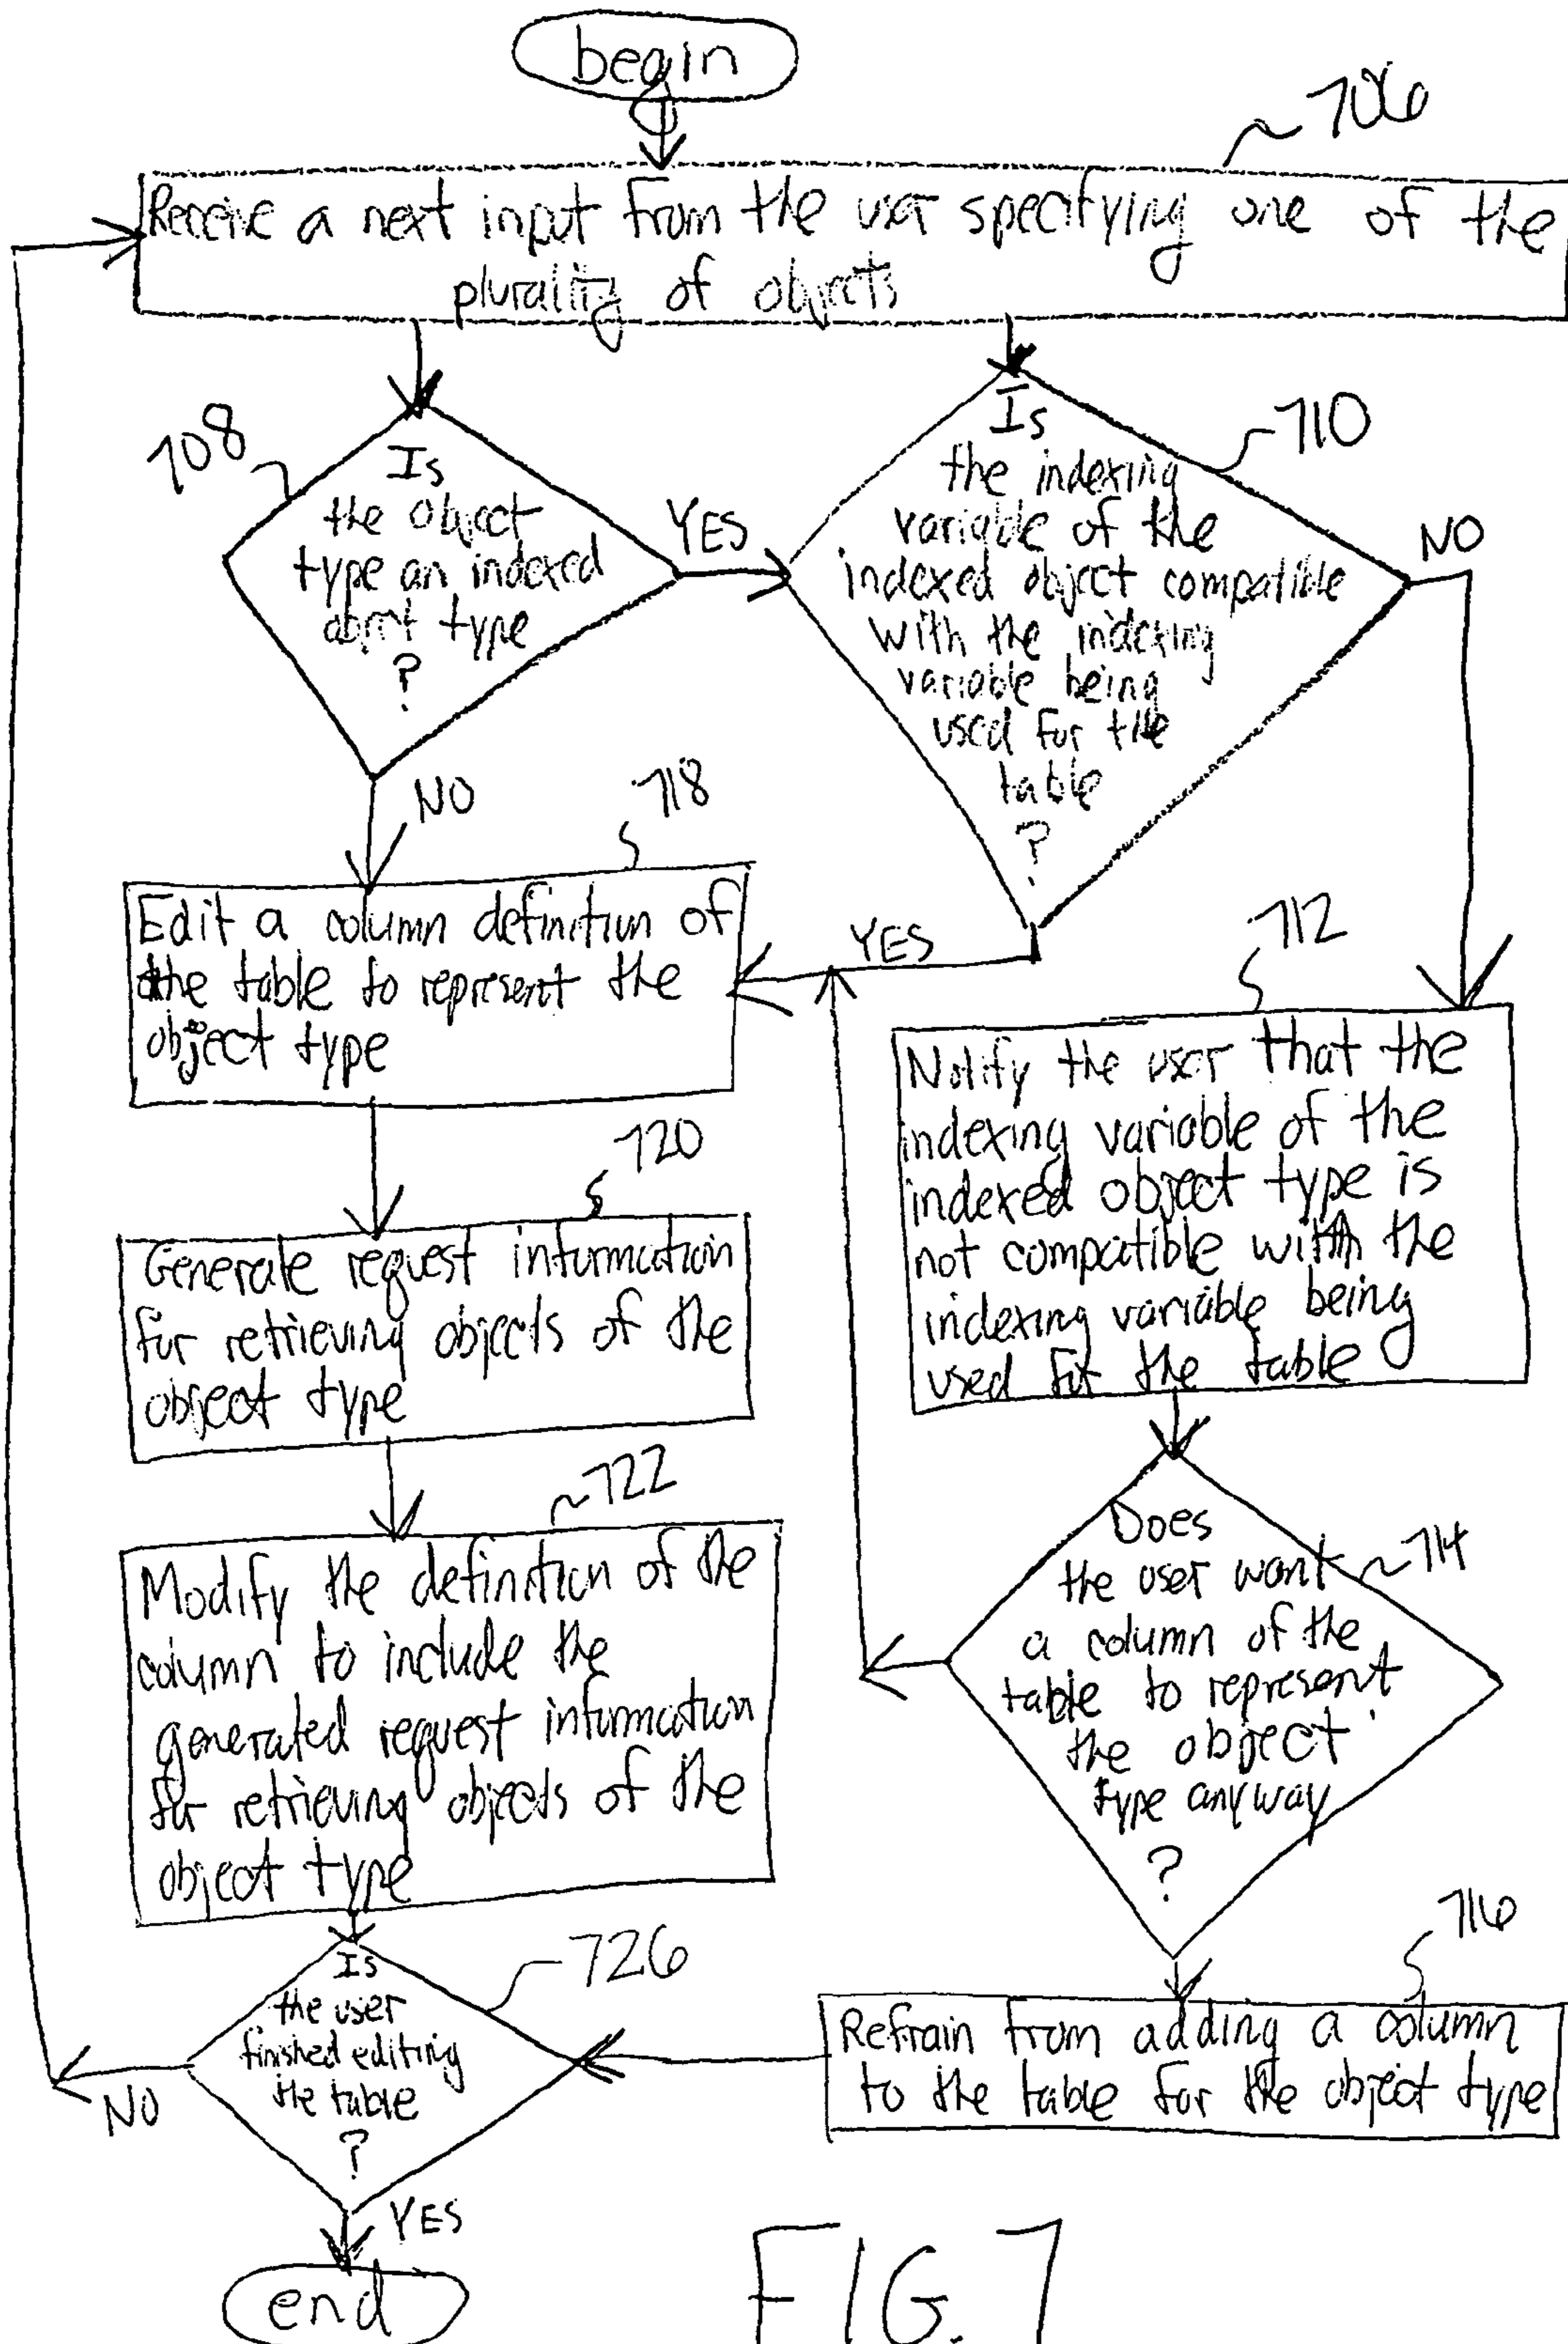 begin
706
Receive a next input from the user specifying one of the
plurality of objects
708
Is
the object
type an indexed
object type
?
YES
NO
710
Is
the indexing
variable of the
indexed object compatible
with the indexing
variable being
used for the
table
?
NO
YES
718
Edit a column definition of
the table to represent the
object type
712
Notify the user that the
indexing variable of the
indexed object type is
not compatible with the
indexing variable being
used for the table
720
Generate request information
for retrieving objects of the
object type
714
Does
the user want
a column of the
table to represent
the object
type anyway
?
722
Modify the definition of the
column to include the
generated request information
for retrieving objects of the
object type
716
Refrain from adding a column
to the table for the object type
726
Is
the user
finished editing
the table
?
NO
YES
end
FIG. 7